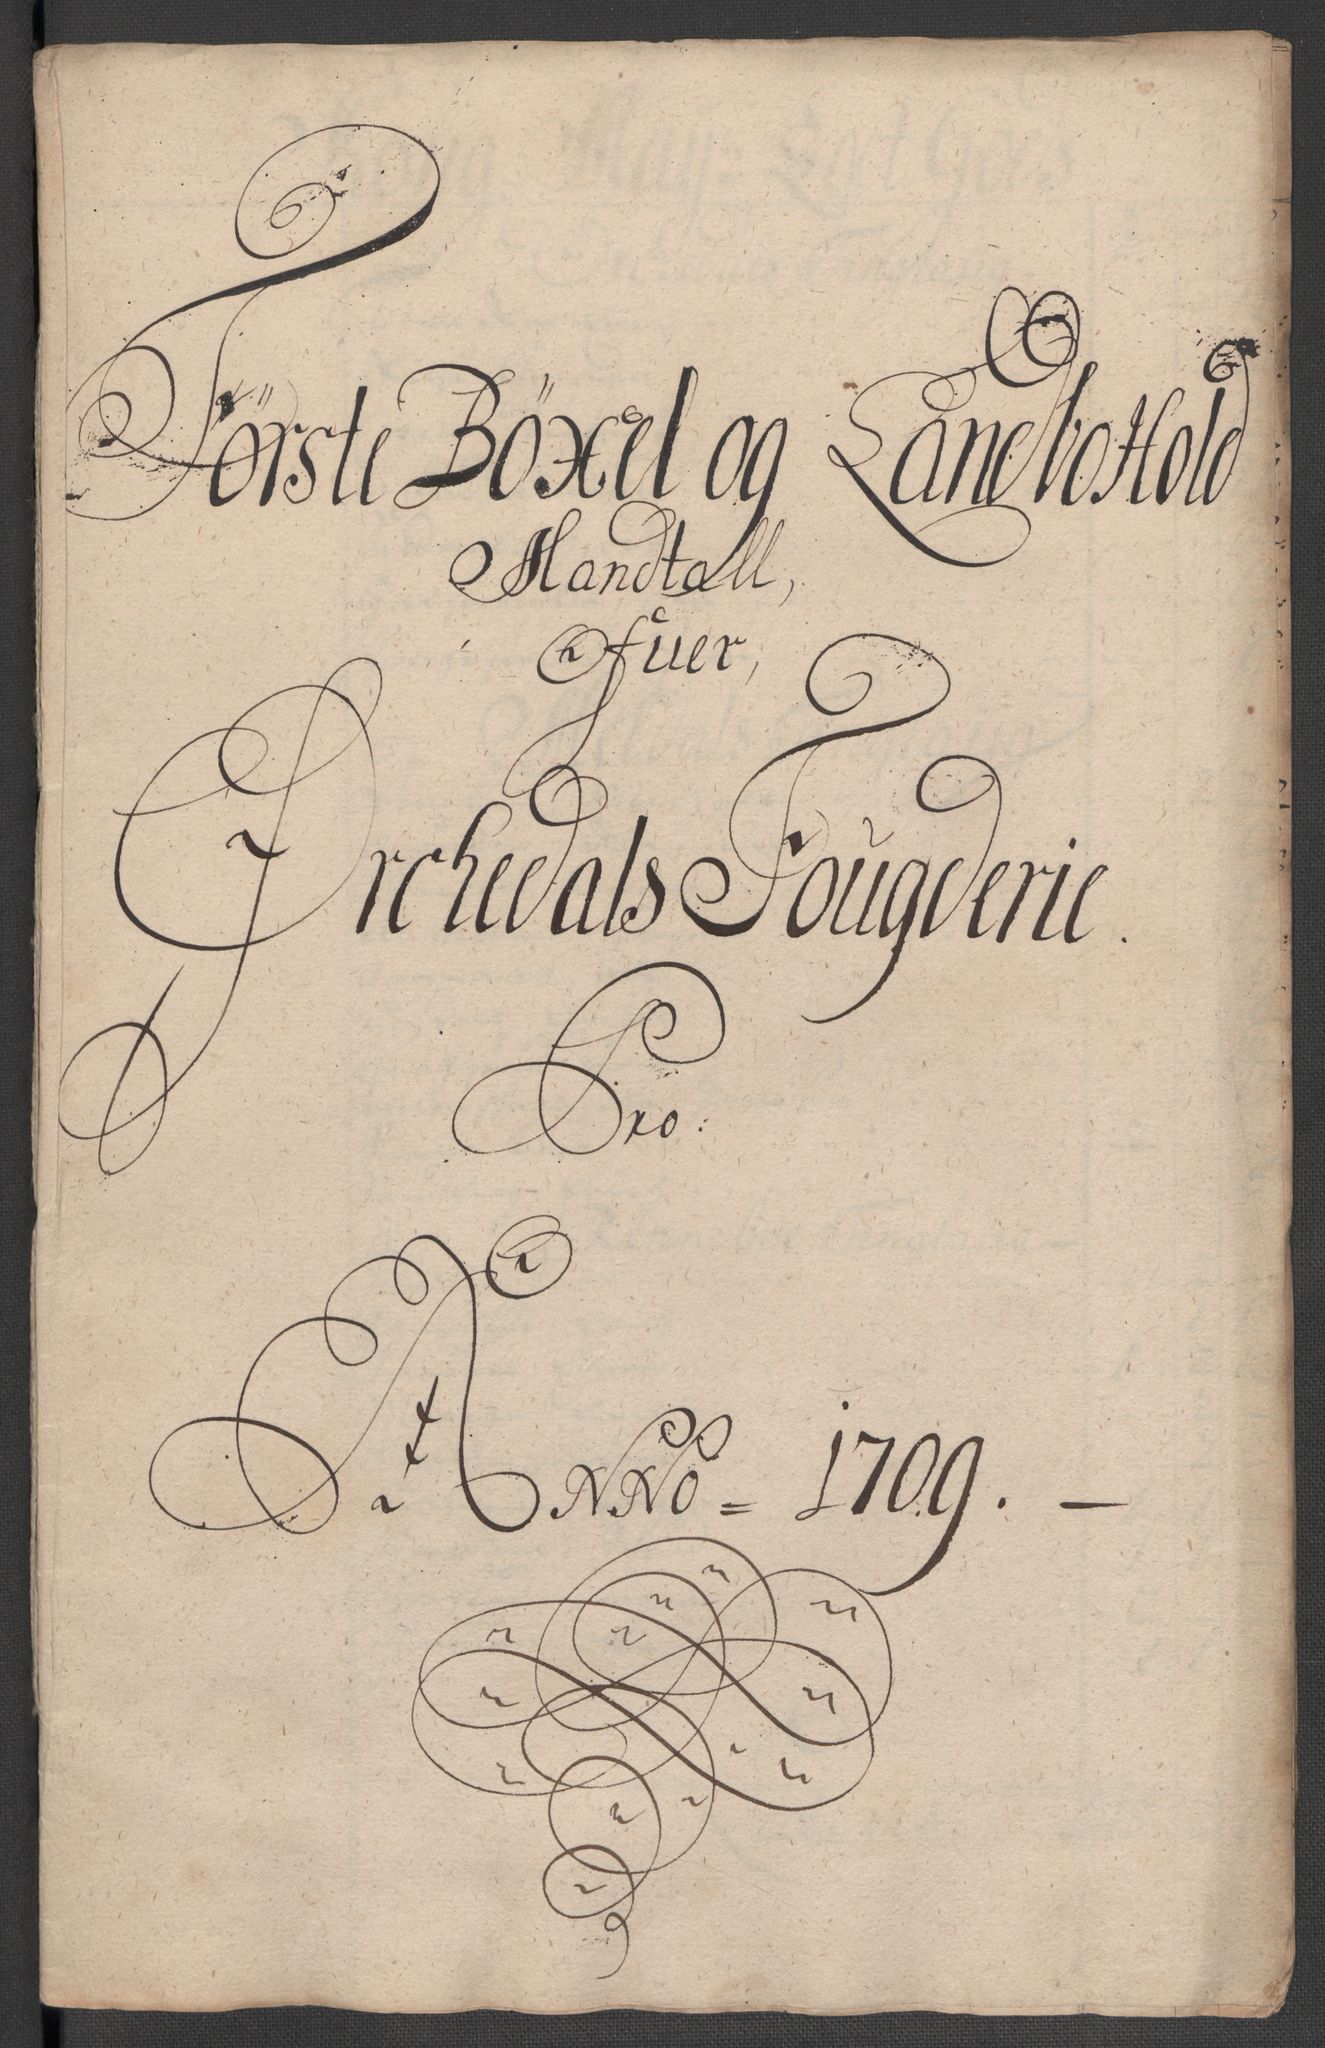 Förste Böxel og Landbohold
Mandtall,
Ofuer,
Orchedals Fougderie.
Pro:
ANNO = 1709. —